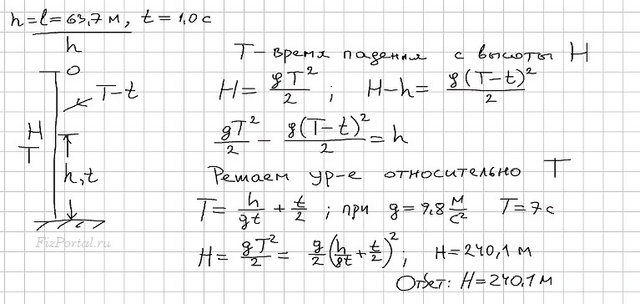 h = l = 63,7 м, t = 1,0 с
h
0
T-t
H
T
h, t
T - время падения с высоты H
H = gT²/2 ; H-h = g(T-t)²/2
gT²/2 - g(T-t)²/2 = h
Решаем ур-е относительно T
T = h/gt + t/2 ; при g = 9,8 м/с² T = 7 с
H = gT²/2 = g/2 (h/gt + t/2)² ; H = 240,1 м
Ответ: H = 240,1 м
FizPortal.ru